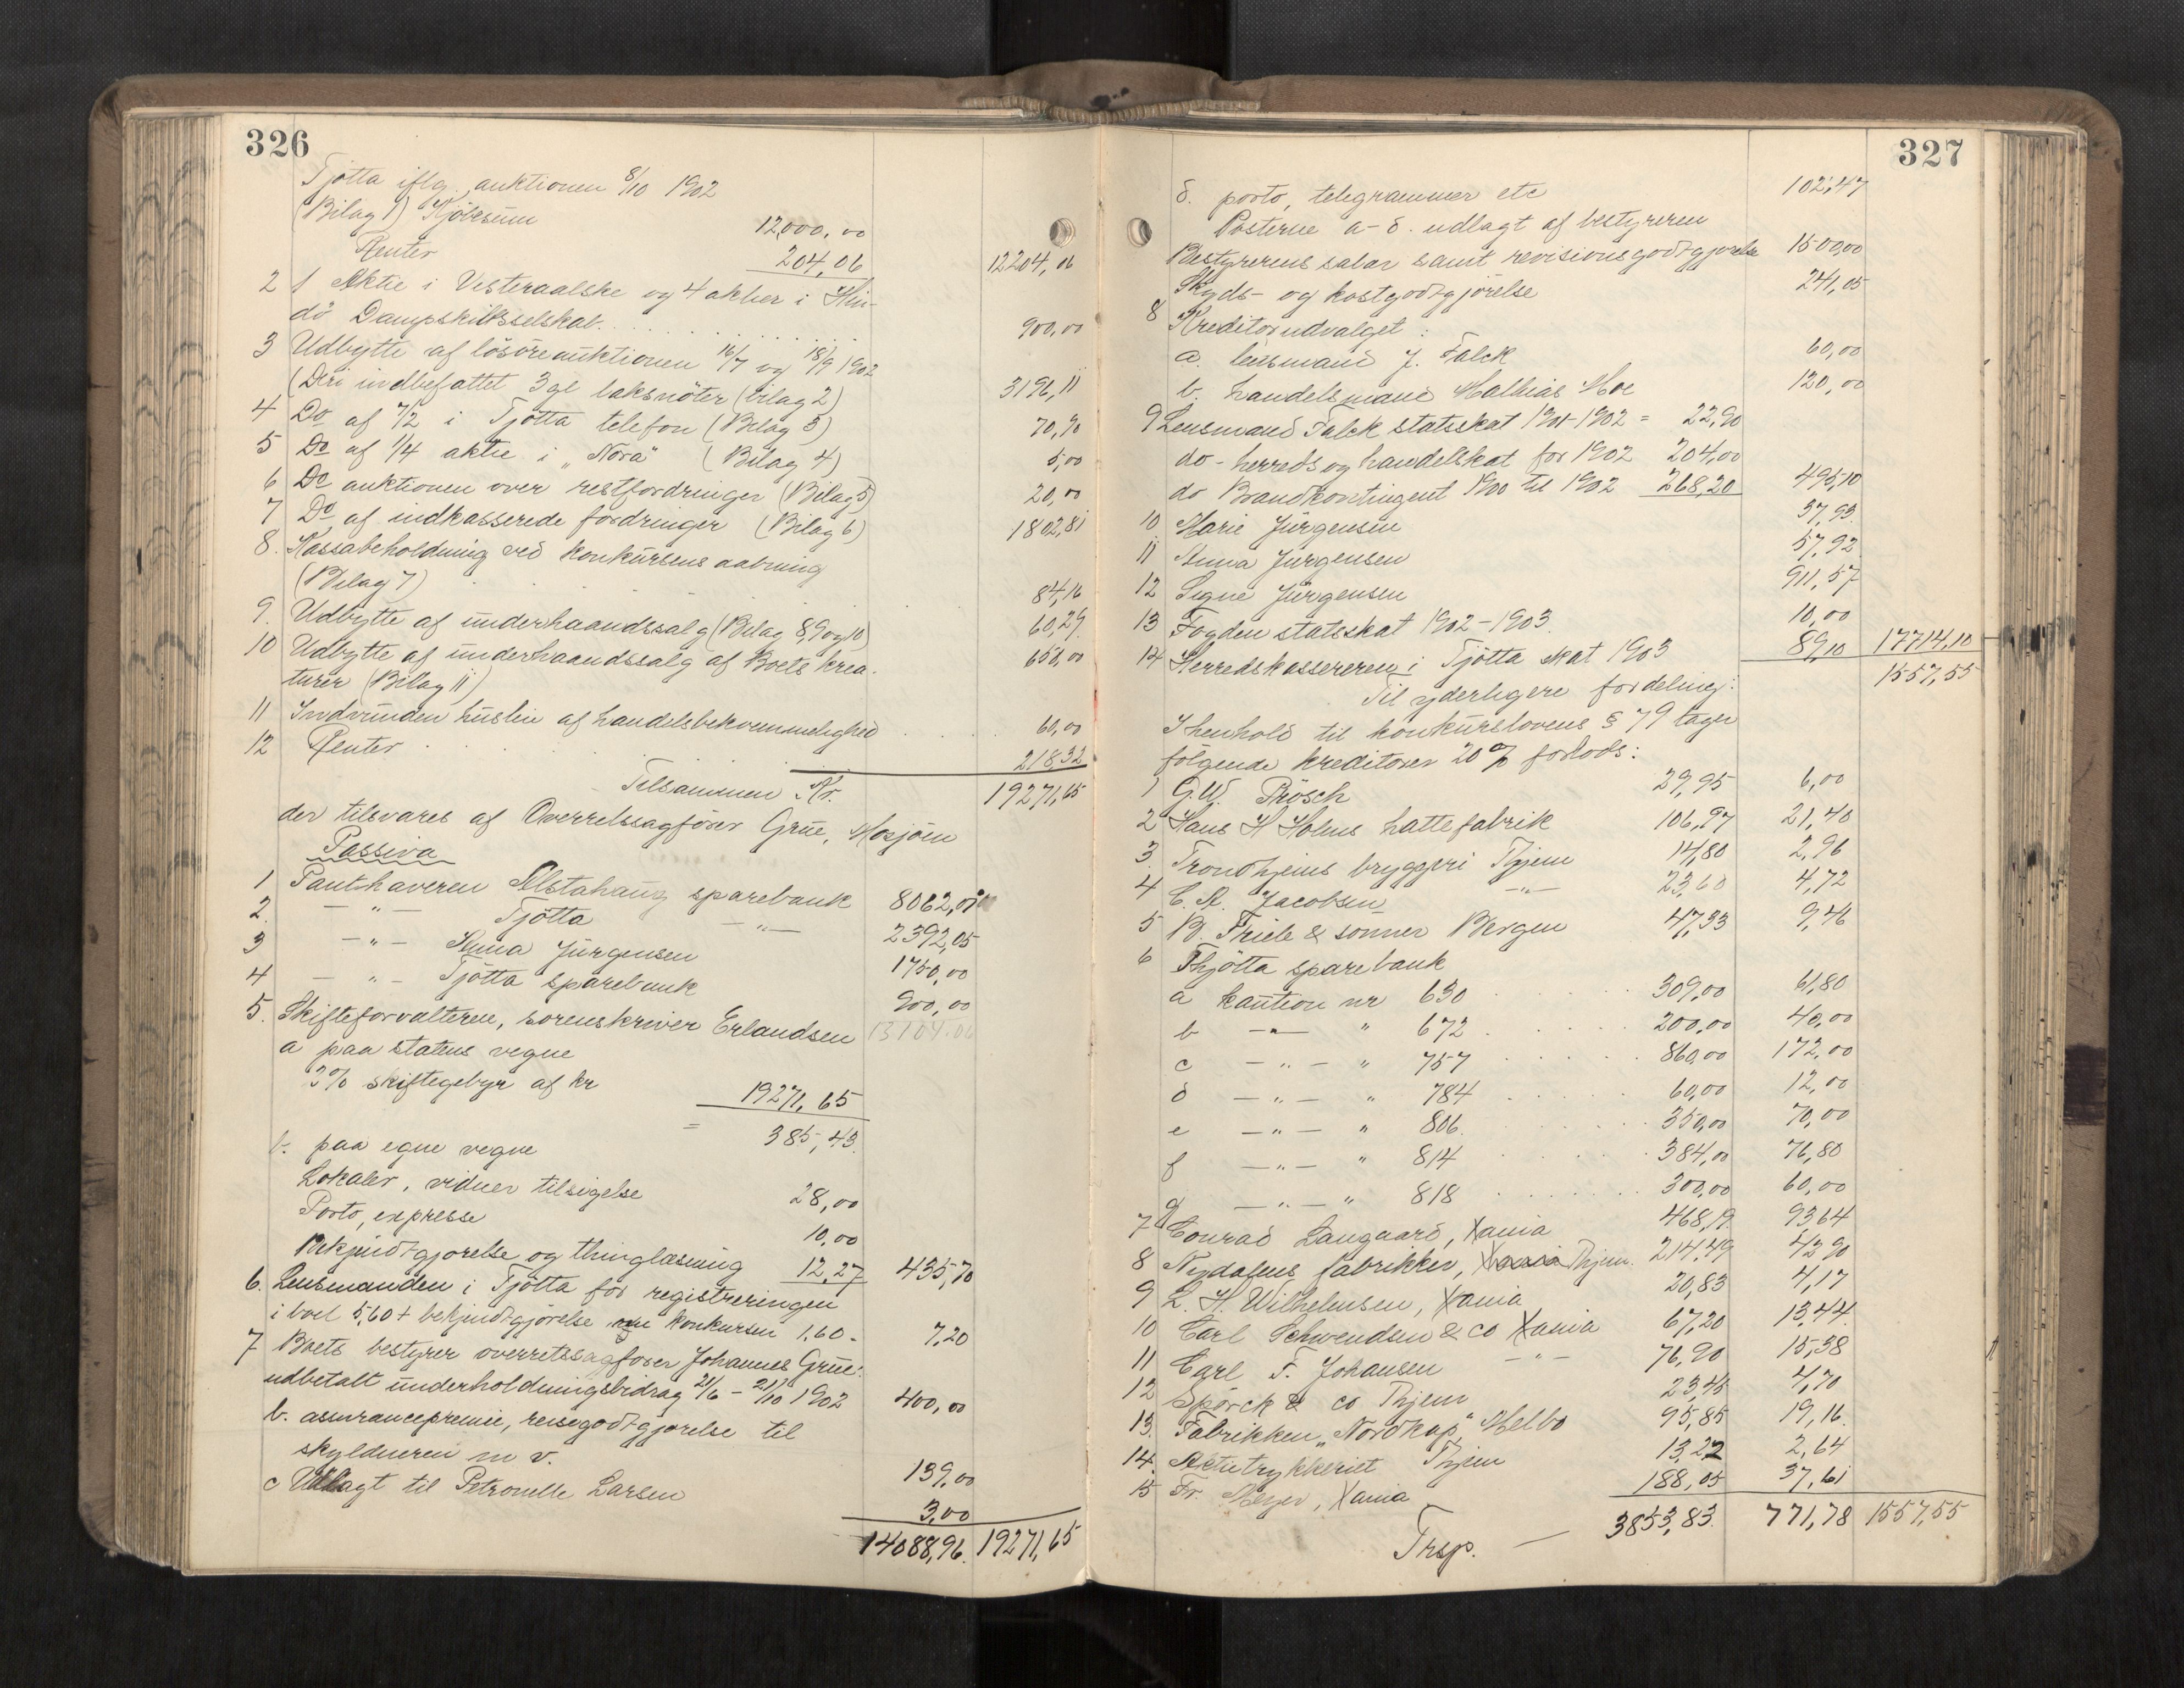 326
Tjötta iflg. auktionen 8/10 1902
(Bilag 1) Kjöbesum 12000,00
Renter 204,06 12204,06
2 1 Aktie i Vesteraalske og 4 aktier i Hin-
dö Dampskibsselskab. 900,00
3 Udbytte af lösöreauktionen 16/7 og 18/9 1902
(Deri indbefattet 3 gl laksnöter (bilag 2) 3196,11
4 Do af 7/2 i Tjötta telefon (Bilag 3) 70,90
5 Do af 1/4 aktie i „Nora" (Bilag 4) 5,00
6 Do auktionen over restfordringer (Bilag 5) 20,00
7 Do af indkasserede fordringer (Bilag 6) 1802,81
8. Kassabeholdning ved konkursens aabning
(Bilag 7) 84,16
9. Udbytte af underhaandssalg (Bilag 8,9 og 10) 60,29
10 Udbytte af underhaandssalg af Boets krea-
turer (Bilag 11) 650,00
11 Indvunden husleie af handelsbekvemmelighed 60,00
12 Renter 218,32
Tilsammen Kr. 19271,65
der tilsvares af Overretssagförer Grüe, Mosjöen
Passiva
1 Panthaveren Alstahaug sparebank 8062,01
2. —"— Tjötta —"— 2392,05
3 —"— Anna Jürgensen 1750,00
4 —"— Tjötta sparebank 900,00
5. Skifteforvalteren, sorenskriver Erlandsen 13104.06
a paa statens vegne
2% skiftegebyr af kr 19271,65
= 385,43.
b. paa egne vegne
Lokaler, vidner tilsigelse 28,00
Porto, expresse 10,00
Bekjendtgjørelse og thinglæsning 12,27 435,70
6. Lensmanden i Tjötta for registreringen
i boet 5,60 + bekjendtgjörelse om konkursen 1,60 = 7,20
7 Boets bestyrer overretssagförer Johannes Grüe:
udbetalt underholdningsbidrag 21/6 – 21/10 1902 400,00
b. assurancepremie, reisegodtgjørelse til
skyldneren m v. 139,00
c Udlagt til Petronelle Larsen 3,00
14088,96. 19271,65
327
d. porto, telegrammer etc 102,47
Posterne a-d. udlagt af bestyreren
Bestyrerens salær samt revisionsgodtgjørelse 1500,00
Skyds- og kostgodtgjörelse 241,05
8 Kreditorudvalget :
a. lensmand J. Falck 60,00
b. handelsmand Mathias Moe 120,00
9 Lensmand Falck statsskat 1901-1902 = 22,90
do - herreds og handelskat for 1902 204,00
do Brandkontingent 1900 til 1902 268,20 495,10
10. Marie Jürgensen 37,93.
11 Anna Jürgensen 57,92
12 Signe Jürgensen 911,57
13 Fogden statsskat 1902-1903. 10,00
14 Herredskassereren i Tjötta skat 1903 89,10 17714,10
Til yderligere fordeling: 1557,55
I henhold til konkurslovens § 79 tager
følgende kreditorer 20% forlods:
1 G.W. Prösch 29,95 6,00
2 Hans H Holms hattefabrik 106,97 21,40
3. Trondhjems bryggeri Thjem 14,80 2,96
4 C. A. Jacobsen —"— 23,60 4,72
5 B. Friele & sonner Bergen 47,33 9,46
6 Thjötta sparebank
a kaution nr 630 309,00 61,80
b —"— " 672 200,00 40,00
c —"— " 757 860,00 172,00
d —"— " 784 60,00 12,00
e —"— " 806. 350,00 70,00
f —"— " 814 384,00 76,80
g —"— " 818 300,00 60,00
7 Conrad Langaard, Xania 468,19. 93,64
8 Nydalens fabrikker, Xania Thjem. 214,49 42,90
9 L. H. Wilhelmsen, Xania 20,83 4,17
10 Carl Schwendsen & co Xania 67,20 13,44.
11 Carl F. Johansen —"— 76,90 15,38
12 Spörck & co Thjem 23,45 4,70
13. Fabrikken „Nordkap", Melbo 95,85 19,16.
14. Actietrykkeriet Thjem 13,22 2,64
15 Fr. Meyer, Xania 188,05 37,61
Trsp. — 3853,83. 771,78 1557,55